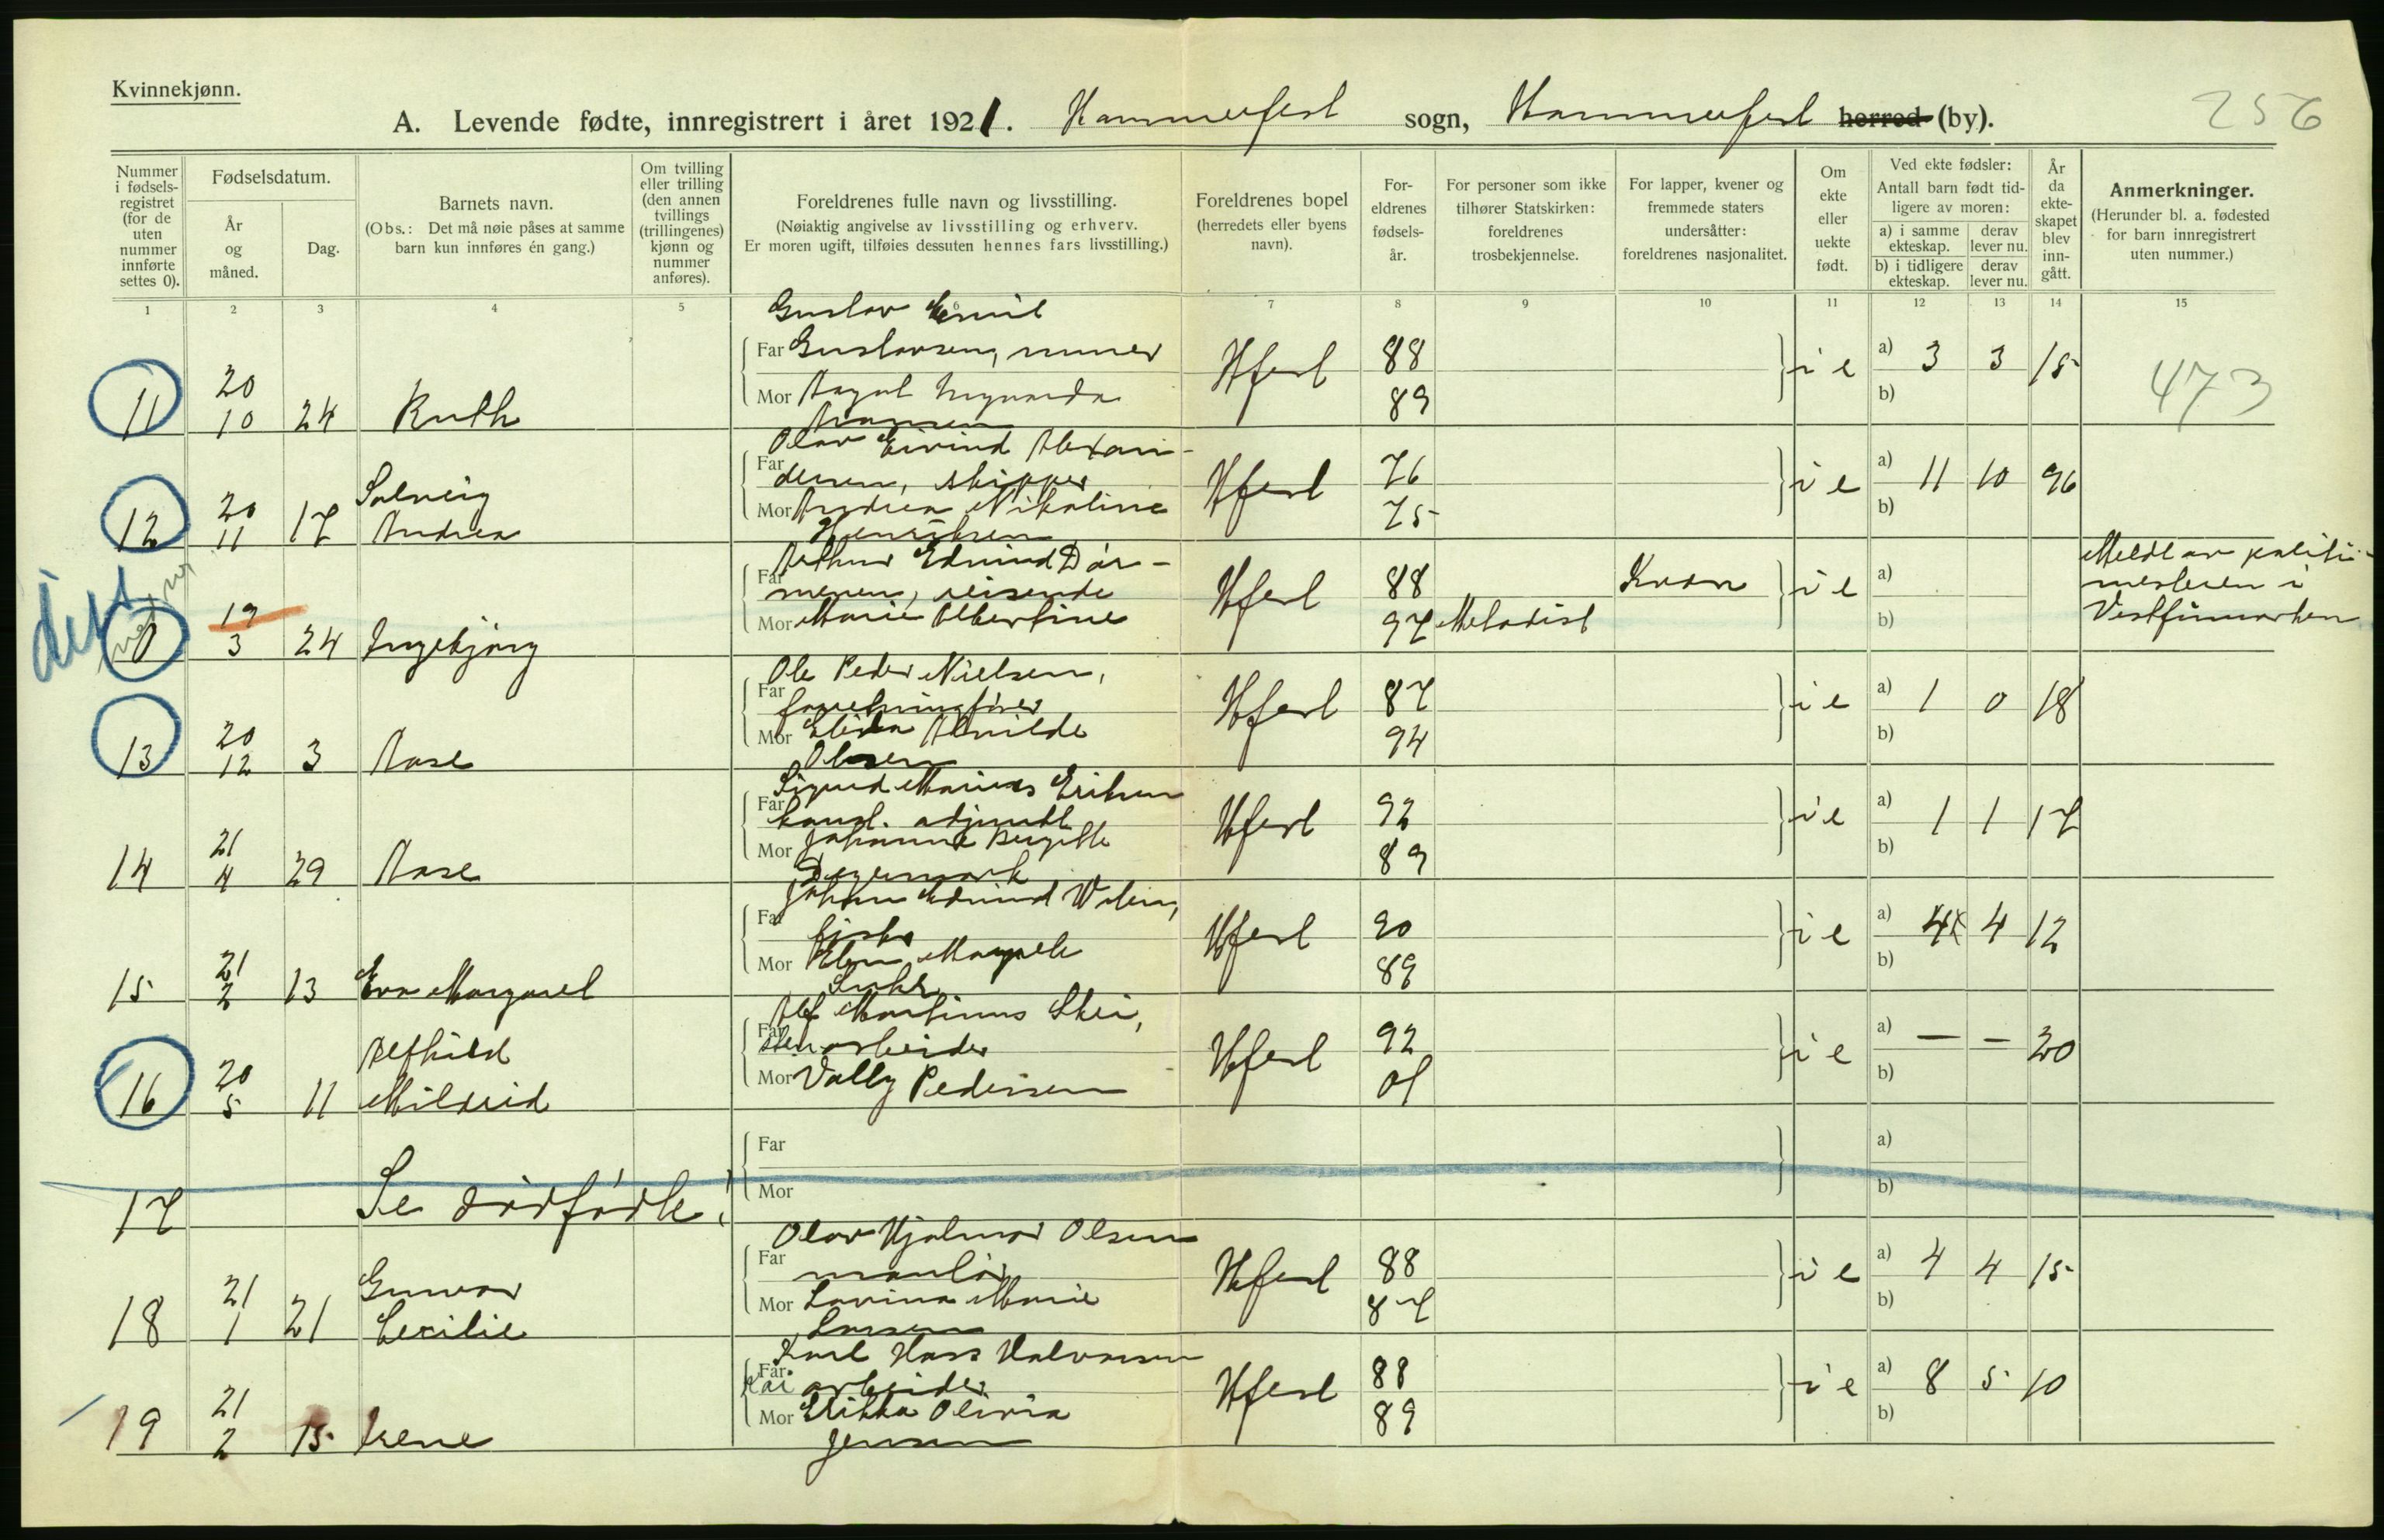 Kvinnekjønn.
A. Levende fødte, innregistrert i året 1921. Hammerfest sogn, Hammerfest herred (by).
256
Nummer i fødsels-registret (for de uten nummer innførte settes 0).
Fødselsdatum.
År og måned.
Dag.
Barnets navn.
(Obs.: Det må nøie påses at samme barn kun innføres én gang.)
Om tvilling eller trilling (den annen tvillings (trillingenes) kjønn og nummer anføres).
Foreldrenes fulle navn og livsstilling.
(Nøiaktig angivelse av livsstilling og erhverv.
Er moren ugift, tilføies dessuten hennes fars livsstilling.)
Foreldrenes bopel (herredets eller byens navn).
For-eldrenes fødsels-år.
For personer som ikke tilhører Statskirken: foreldrenes trosbekjennelse.
For lapper, kvener og fremmede staters undersåtter: foreldrenes nasjonalitet.
Om ekte eller uekte født.
Ved ekte fødsler:
Antall barn født tid-ligere av moren:
a) i samme ekteskap.
derav lever nu.
b) i tidligere ekteskap.
derav lever nu.
År da ekte-skapet blev inn-gått.
Anmerkninger.
(Herunder bl. a. fødested for barn innregistrert uten nummer.)
1 2 3 4 5 6 7 8 9 10 11 12 13 14 15
Gustav Emil
Far Gustavsen, murer Hfest 88 i e a) 3 3 15
11 20 10 24 Ruth Mor Aagot 89 b) 473
Hansen
Olav Eivind Alexan-
Far dersen, skipper Hfest 76 i e a) 11 10 96
12 20 11 17 Solveig Andrea Mor Andrea Nikoline 75 b)
Henriksen
Arthur Edmind
Far reisende Hfest 88 Kvæn i e a) Meldt av politi-
mesteren i
0 19 3 24 Ingebjørg Mor Marie Albertine 97 Metodist b) Vestfinmarken
Ole Peder Nielsen,
Far forretningfører Hfest 87 i e a) 1 0 18
13 20 12 3 Aase Mor Elida Alvilde 94 b)
Olsen
Sigurd Marius Eriksen
Far konst. adjunkt Hfest 92 i e a) 1 1 17
14 21 4 29 Aase Mor Johanne Birgitte 89 b)
Degermark
Johan Edmind
Far fisker Hfest 90 i e a) 4 4 12
15 21 2 13 Eva Margaret Mor Elen Margrete 89 b)
Alf Martinus
Far arbeider Hfest 92 i e a) — — 20
16 20 5 11 Alfhild Mildrid Mor Vally Pedersen 01 b)
Far a)
17 Se dødfødte! Mor b)
Olav Hjalmar Olsen
Far montør Hfest 88 i e a) 4 4 15
18 21 1 21 Gunvor Cecilie Mor Lovina Marie 87 b)
Larsen
Karl Hass Halvorsen
Far Kai arbeider Hfest 88 i e a) 8 5 10
19 21 2 15 Irene Mor Erikka Olivia 89 b)
Jensen